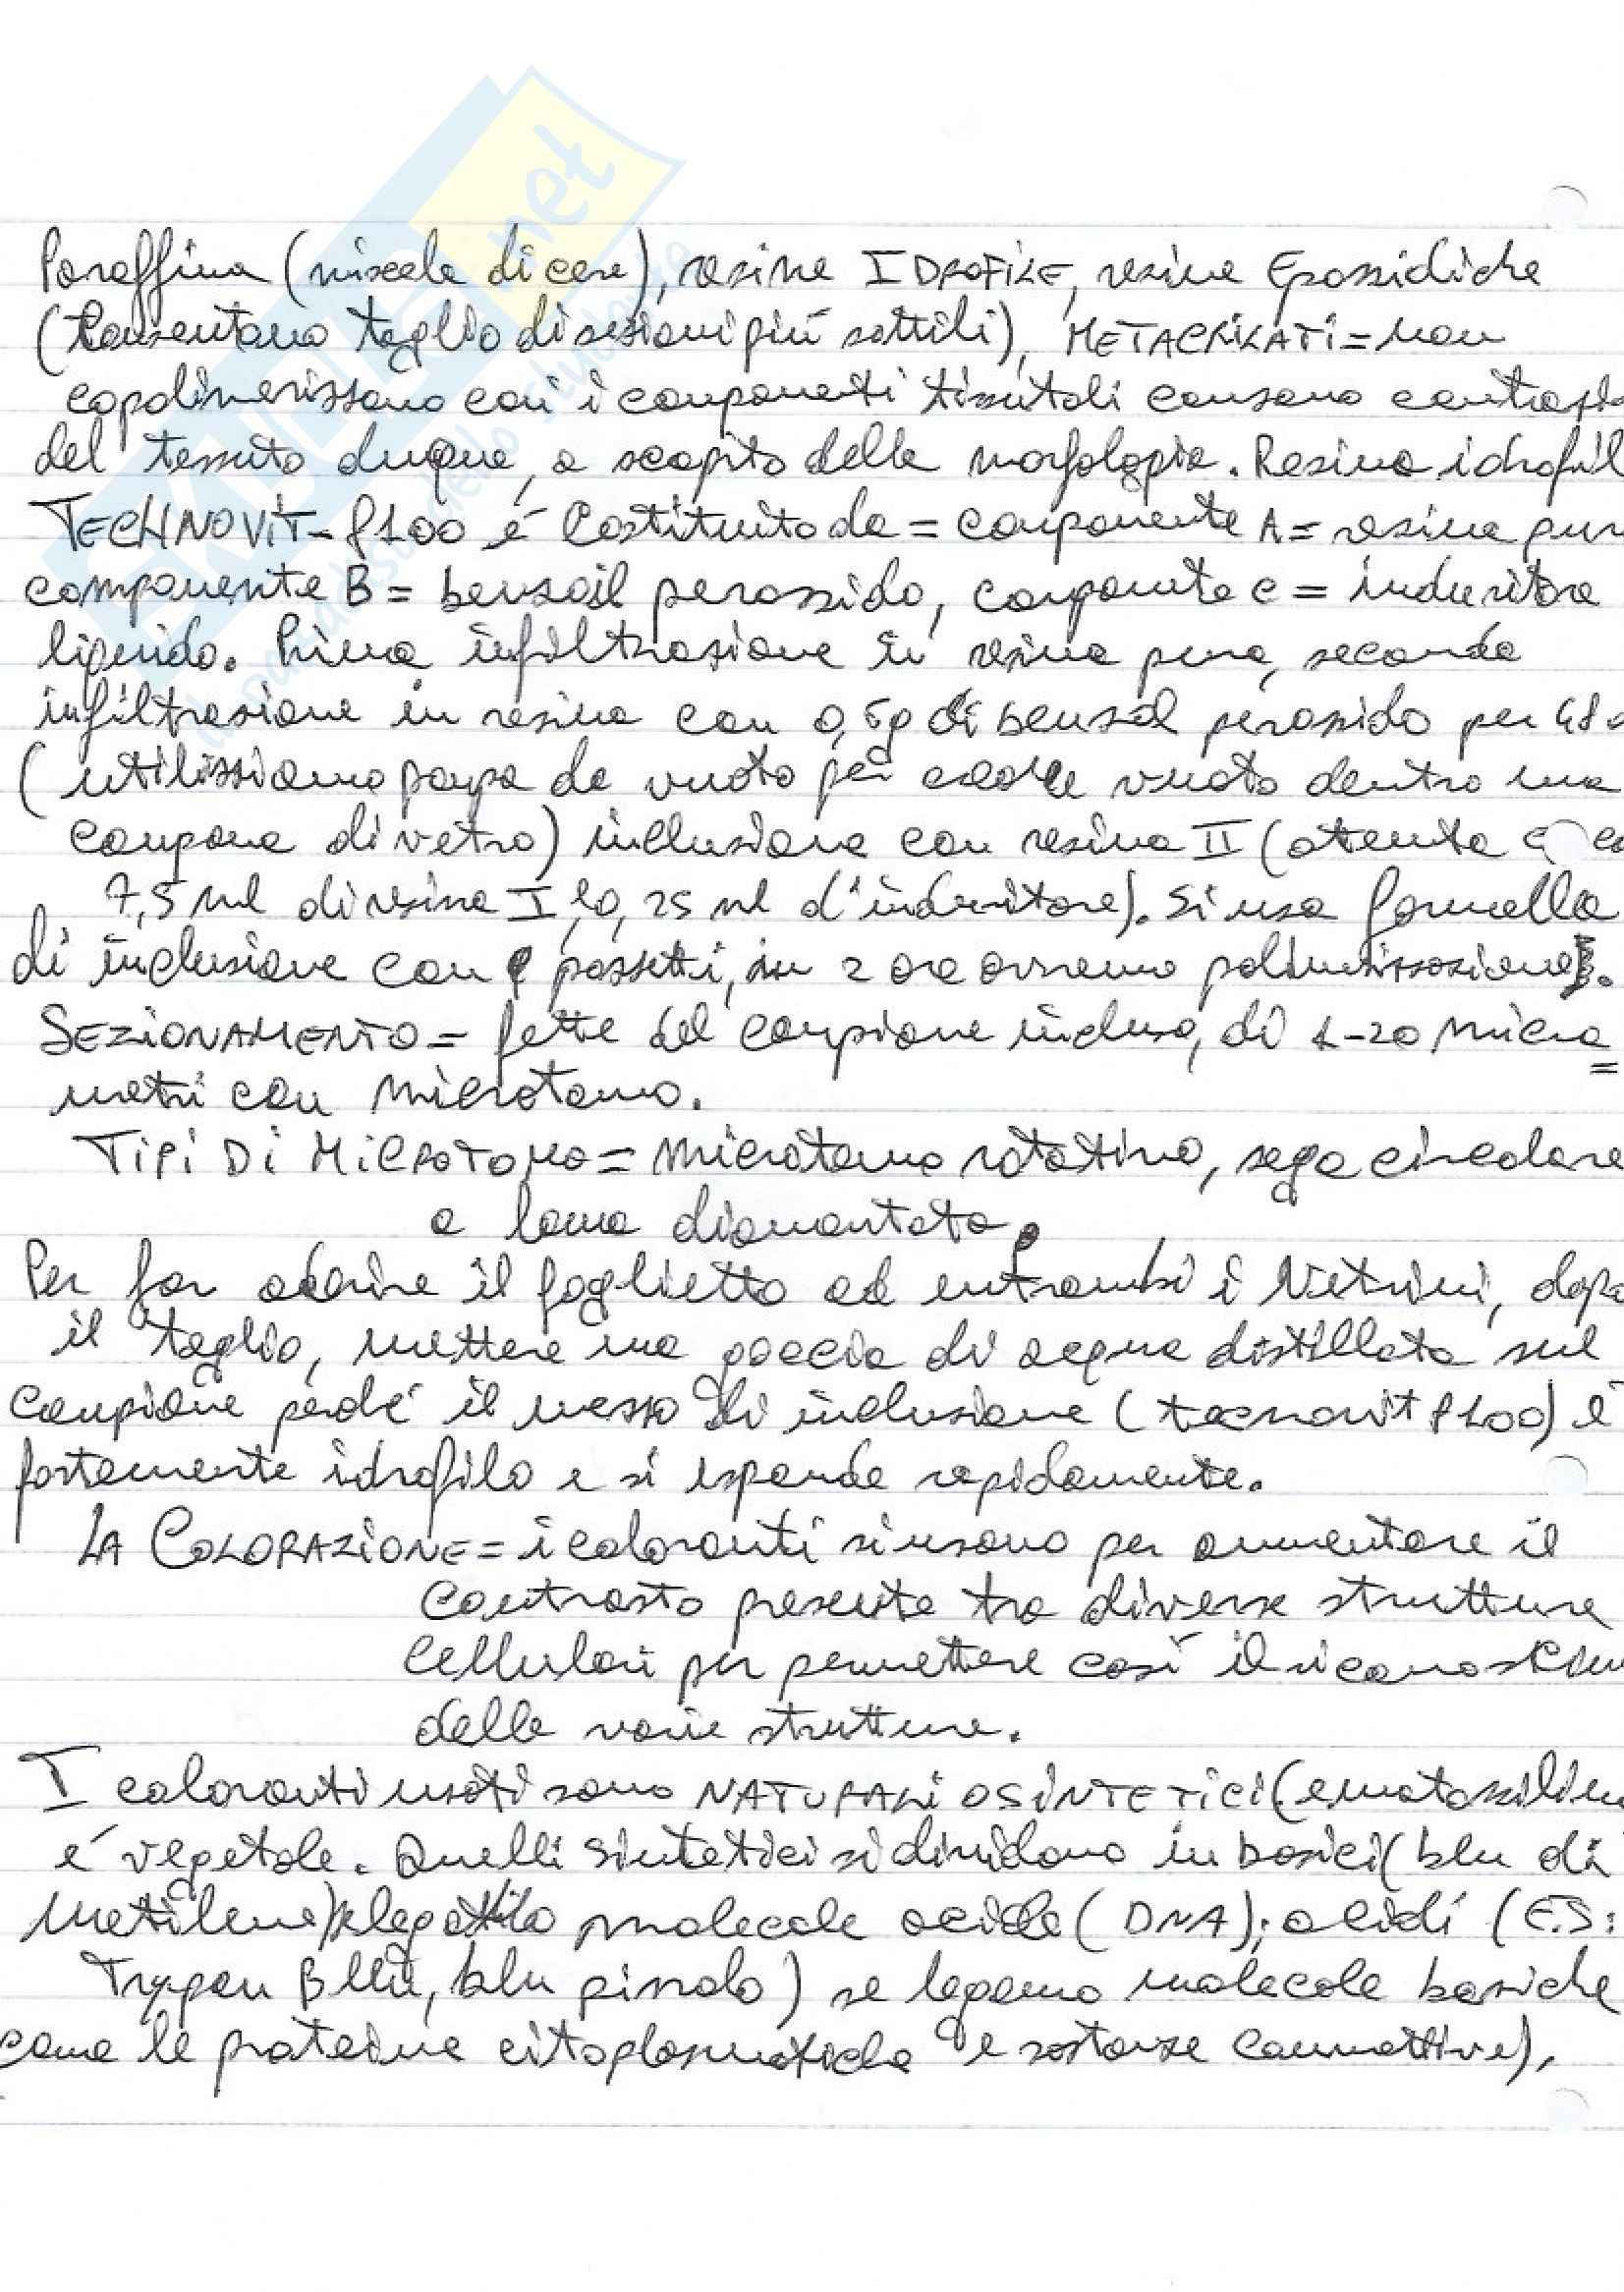 Paraffina (miscela di cere), resine IDROFILE, resine Epossidiche
(Consentono taglio di sezioni più sottili), METACRILATI = non
copolimerizzano con i componenti tissutali causano
del tessuto dunque, a scapito della morfologia. Resina
TECHNOVIT-8100 é Costituito da = componente A = resina
componente B = benzoil perossido, componente C = induritore
liquido. Prima infiltrazione in resina pura, seconda
infiltrazione in resina con di benzoil perossido per
(utilizziamo pompa da vuoto per creare vuoto dentro una
campana di vetro) inclusione con resina II (ottenuta
7,5 ml di resina I, e 0,25 ml d'induritore). Si usa formella
di inclusione con pozzetti, in 2 ore avremo polimerizzazione.
SEZIONAMENTO = fette del campione incluso, di 1-20 micro=
metri con microtomo.
TIPI DI MICROTOMO = microtomo rotativo, sega circolare
a lama diamantata.
Per far aderire il foglietto ad entrambi i Vetrini, dopo
il taglio, mettere una goccia di acqua distillata sul
campione perché il mezzo di inclusione (tecnovit 8100) é
fortemente idrofilo e si espande rapidamente.
LA COLORAZIONE = i coloranti si usano per aumentare il
contrasto presente tra diverse strutture
cellulari per permettere così il
delle varie strutture.
I coloranti usati sono NATURALI O SINTETICI (
é vegetale. Quelli Sintetici si dividono in basici (blu di
metilene) molecole acide (DNA); acidi (ES:
Trypan Bllu, blu pirrolo) se legano molecole basiche
come le proteine citoplasmatiche e sostanze connettive).
di
net